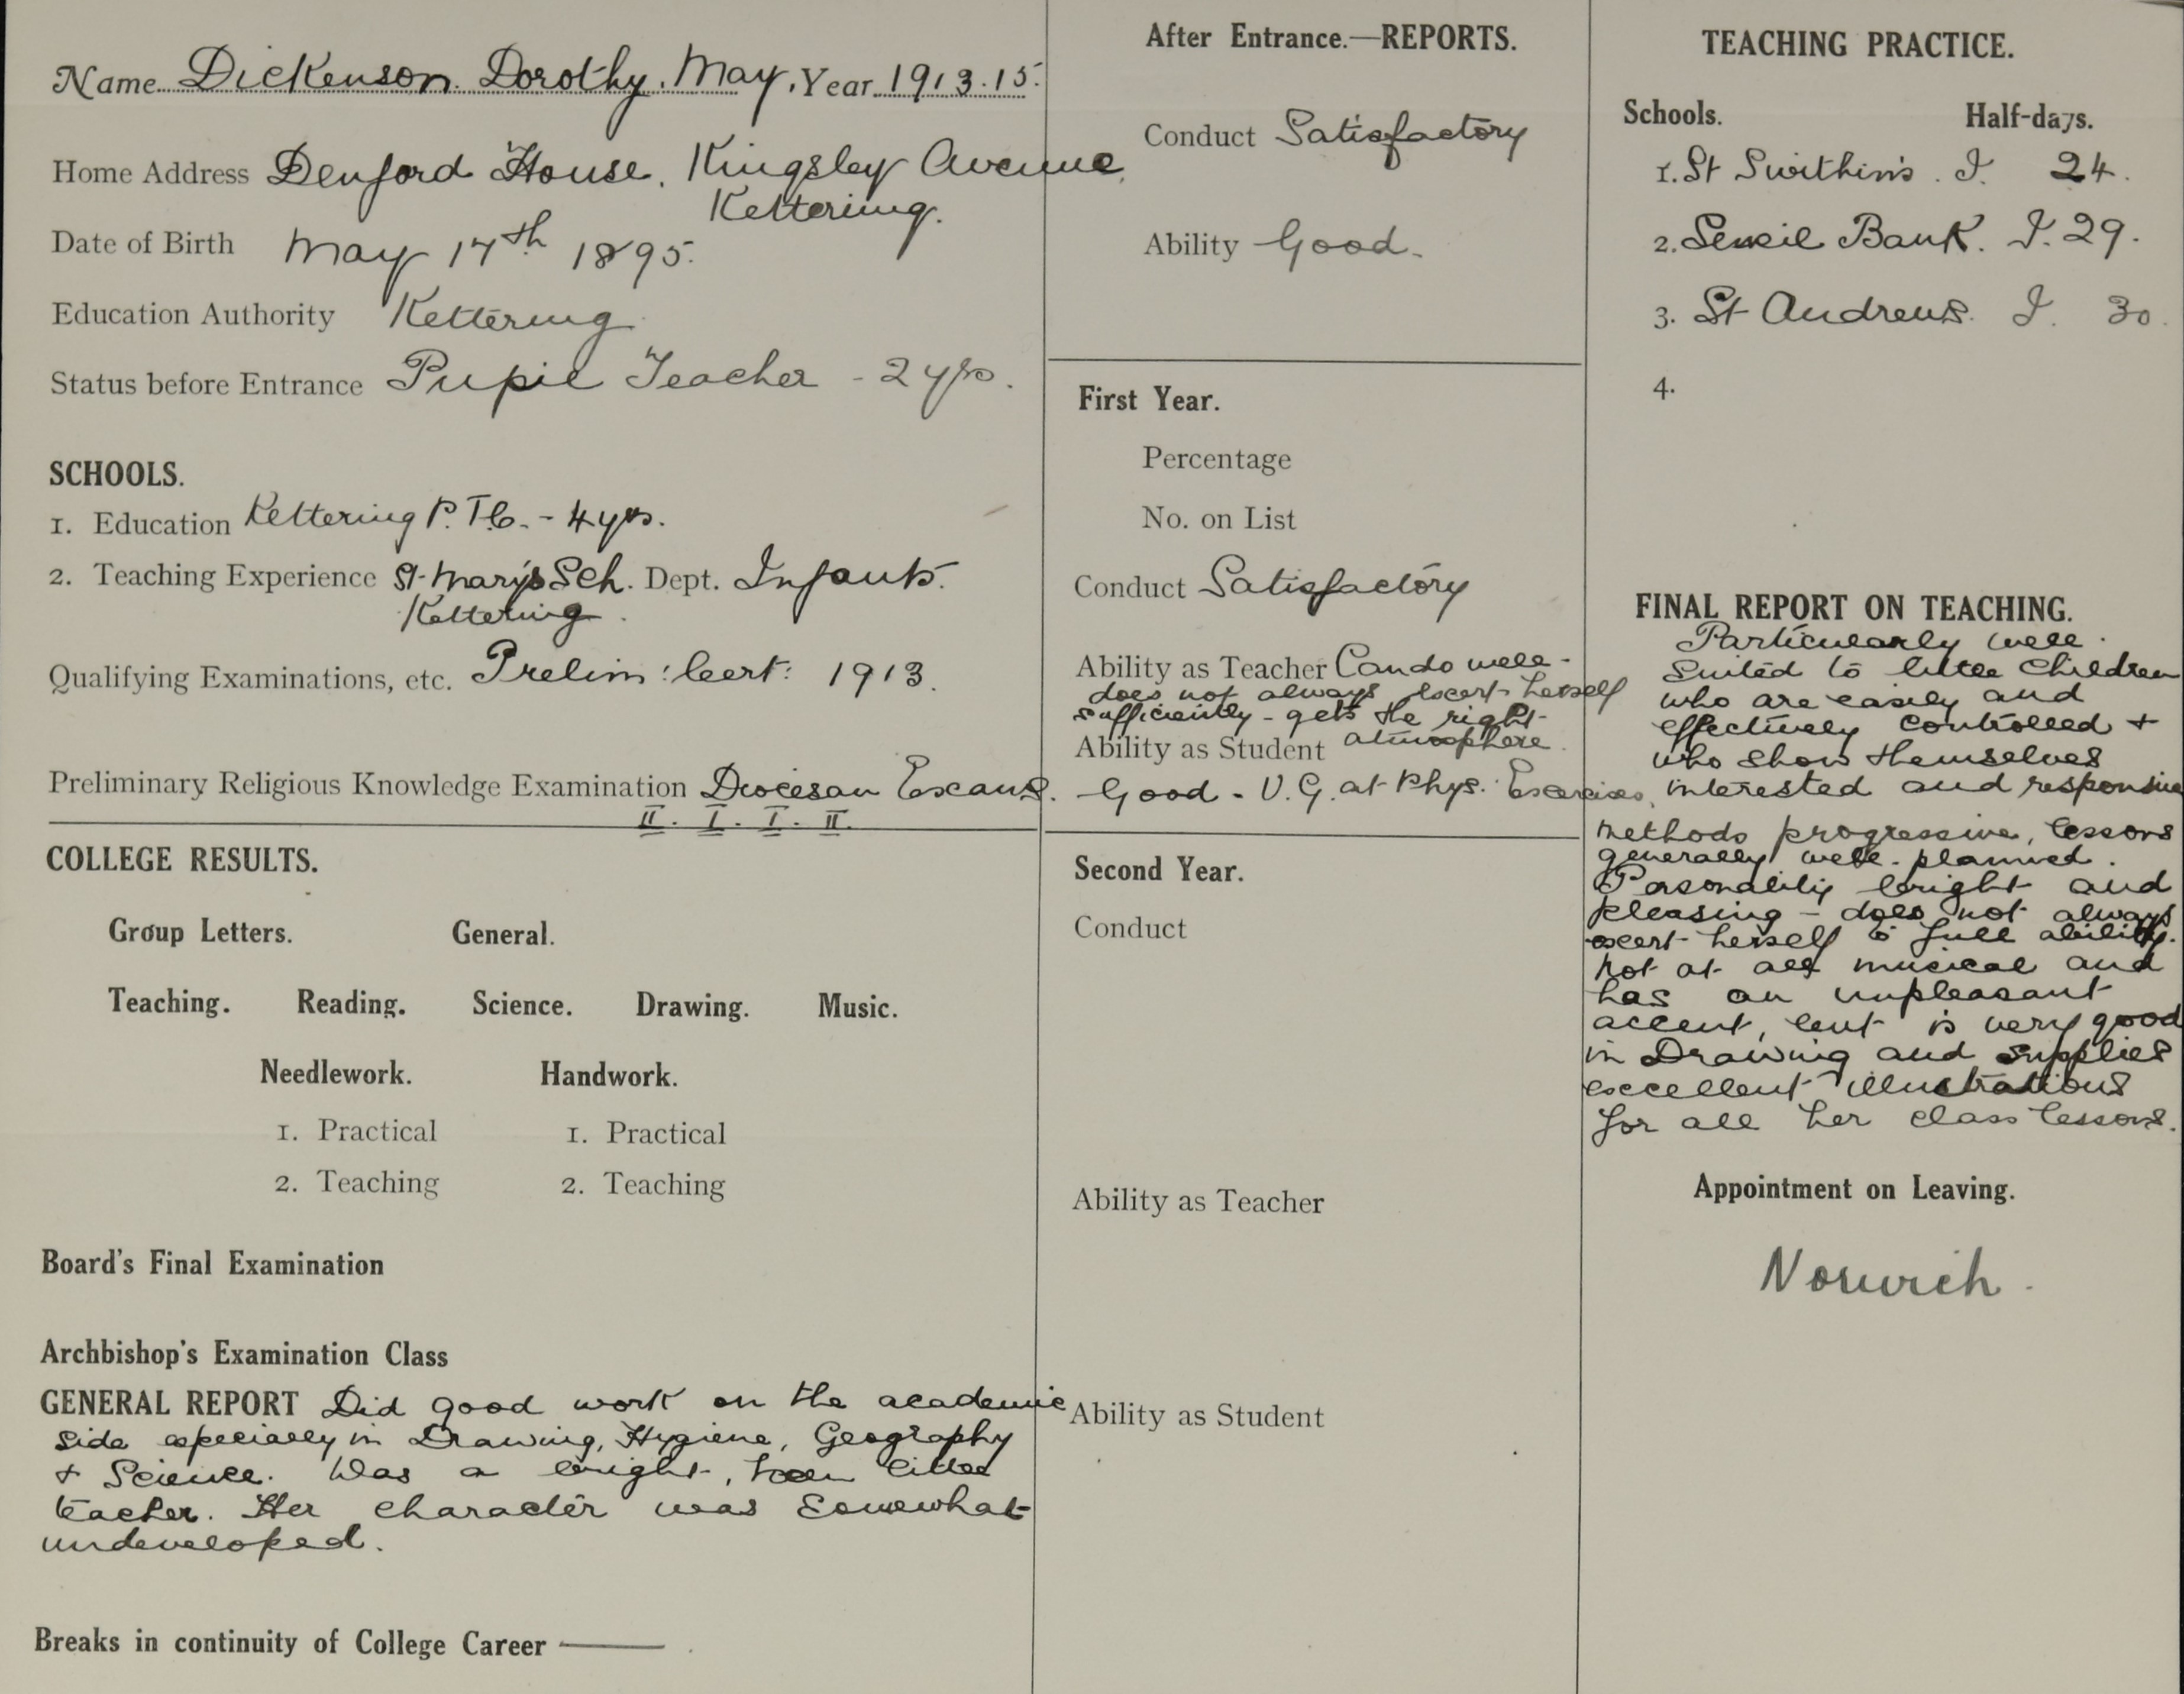 Name Dickenson. Dorothy. May. Year 1913.15.
Home Address Denford House. Kingsley Avenue.
Kettering.
Date of Birth May 17th 1895.
Education Authority Kettering
Status before Entrance Pupil Teacher - 2 yrs.
SCHOOLS.
1. Education Kettering P.T.C. - 4 yrs.
2. Teaching Experience St. Mary's Sch. Dept. Infants.
Kettering.
Qualifying Examinations, etc. Prelim: Cert: 1913.
Preliminary Religious Knowledge Examination Diocesan Exams.
II. I. I. II.
COLLEGE RESULTS.
Group Letters. General.
Teaching. Reading. Science. Drawing. Music.
Needlework. Handwork.
1. Practical 1. Practical
2. Teaching 2. Teaching
Board's Final Examination
Archbishop's Examination Class
GENERAL REPORT Did good work on the academic
side especially in Drawing, Hygiene, Geography
& Science. Was a bright, keen little
teacher. Her character was somewhat
undeveloped.
Breaks in continuity of College Career
After Entrance.—REPORTS.
Conduct Satisfactory
Ability Good.
First Year.
Percentage
No. on List
Conduct Satisfactory
Ability as Teacher Can do well -
does not always exert herself
sufficiently - gets the right
Ability as Student atmosphere.
Good - V.G. at Phys. Exercises.
Second Year.
Conduct
Ability as Teacher
Ability as Student
TEACHING PRACTICE.
Schools. Half-days.
1. St Swithin's. I. 24.
2. Sincil Bank. I. 29.
3. St Andrews. I. 30.
4.
FINAL REPORT ON TEACHING.
Particularly well
suited to little children
who are easily and
effectively controlled &
who show themselves
interested and responsive
Methods progressive, lessons
generally well-planned.
Personality bright and
pleasing - does not always
exert herself to full ability.
Not at all musical and
has an unpleasant
accent, but is very good
in Drawing and supplies
excellent illustrations
for all her class lessons.
Appointment on Leaving.
Norwich.